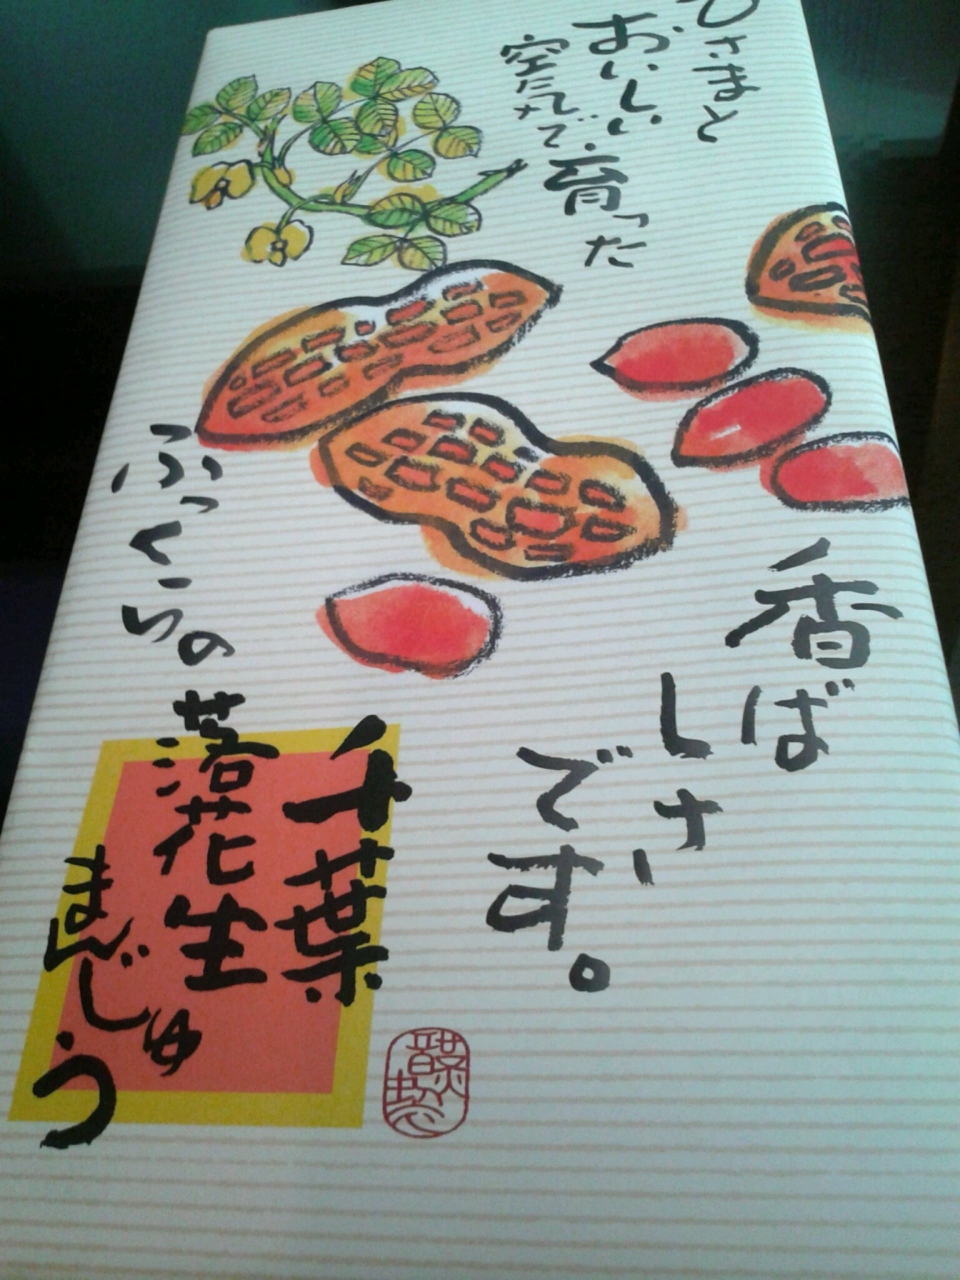 ひさまと
おいしい
空気で育った
香ば
しさ
です。
ふっくらの
千葉
落花生
まんじゅう